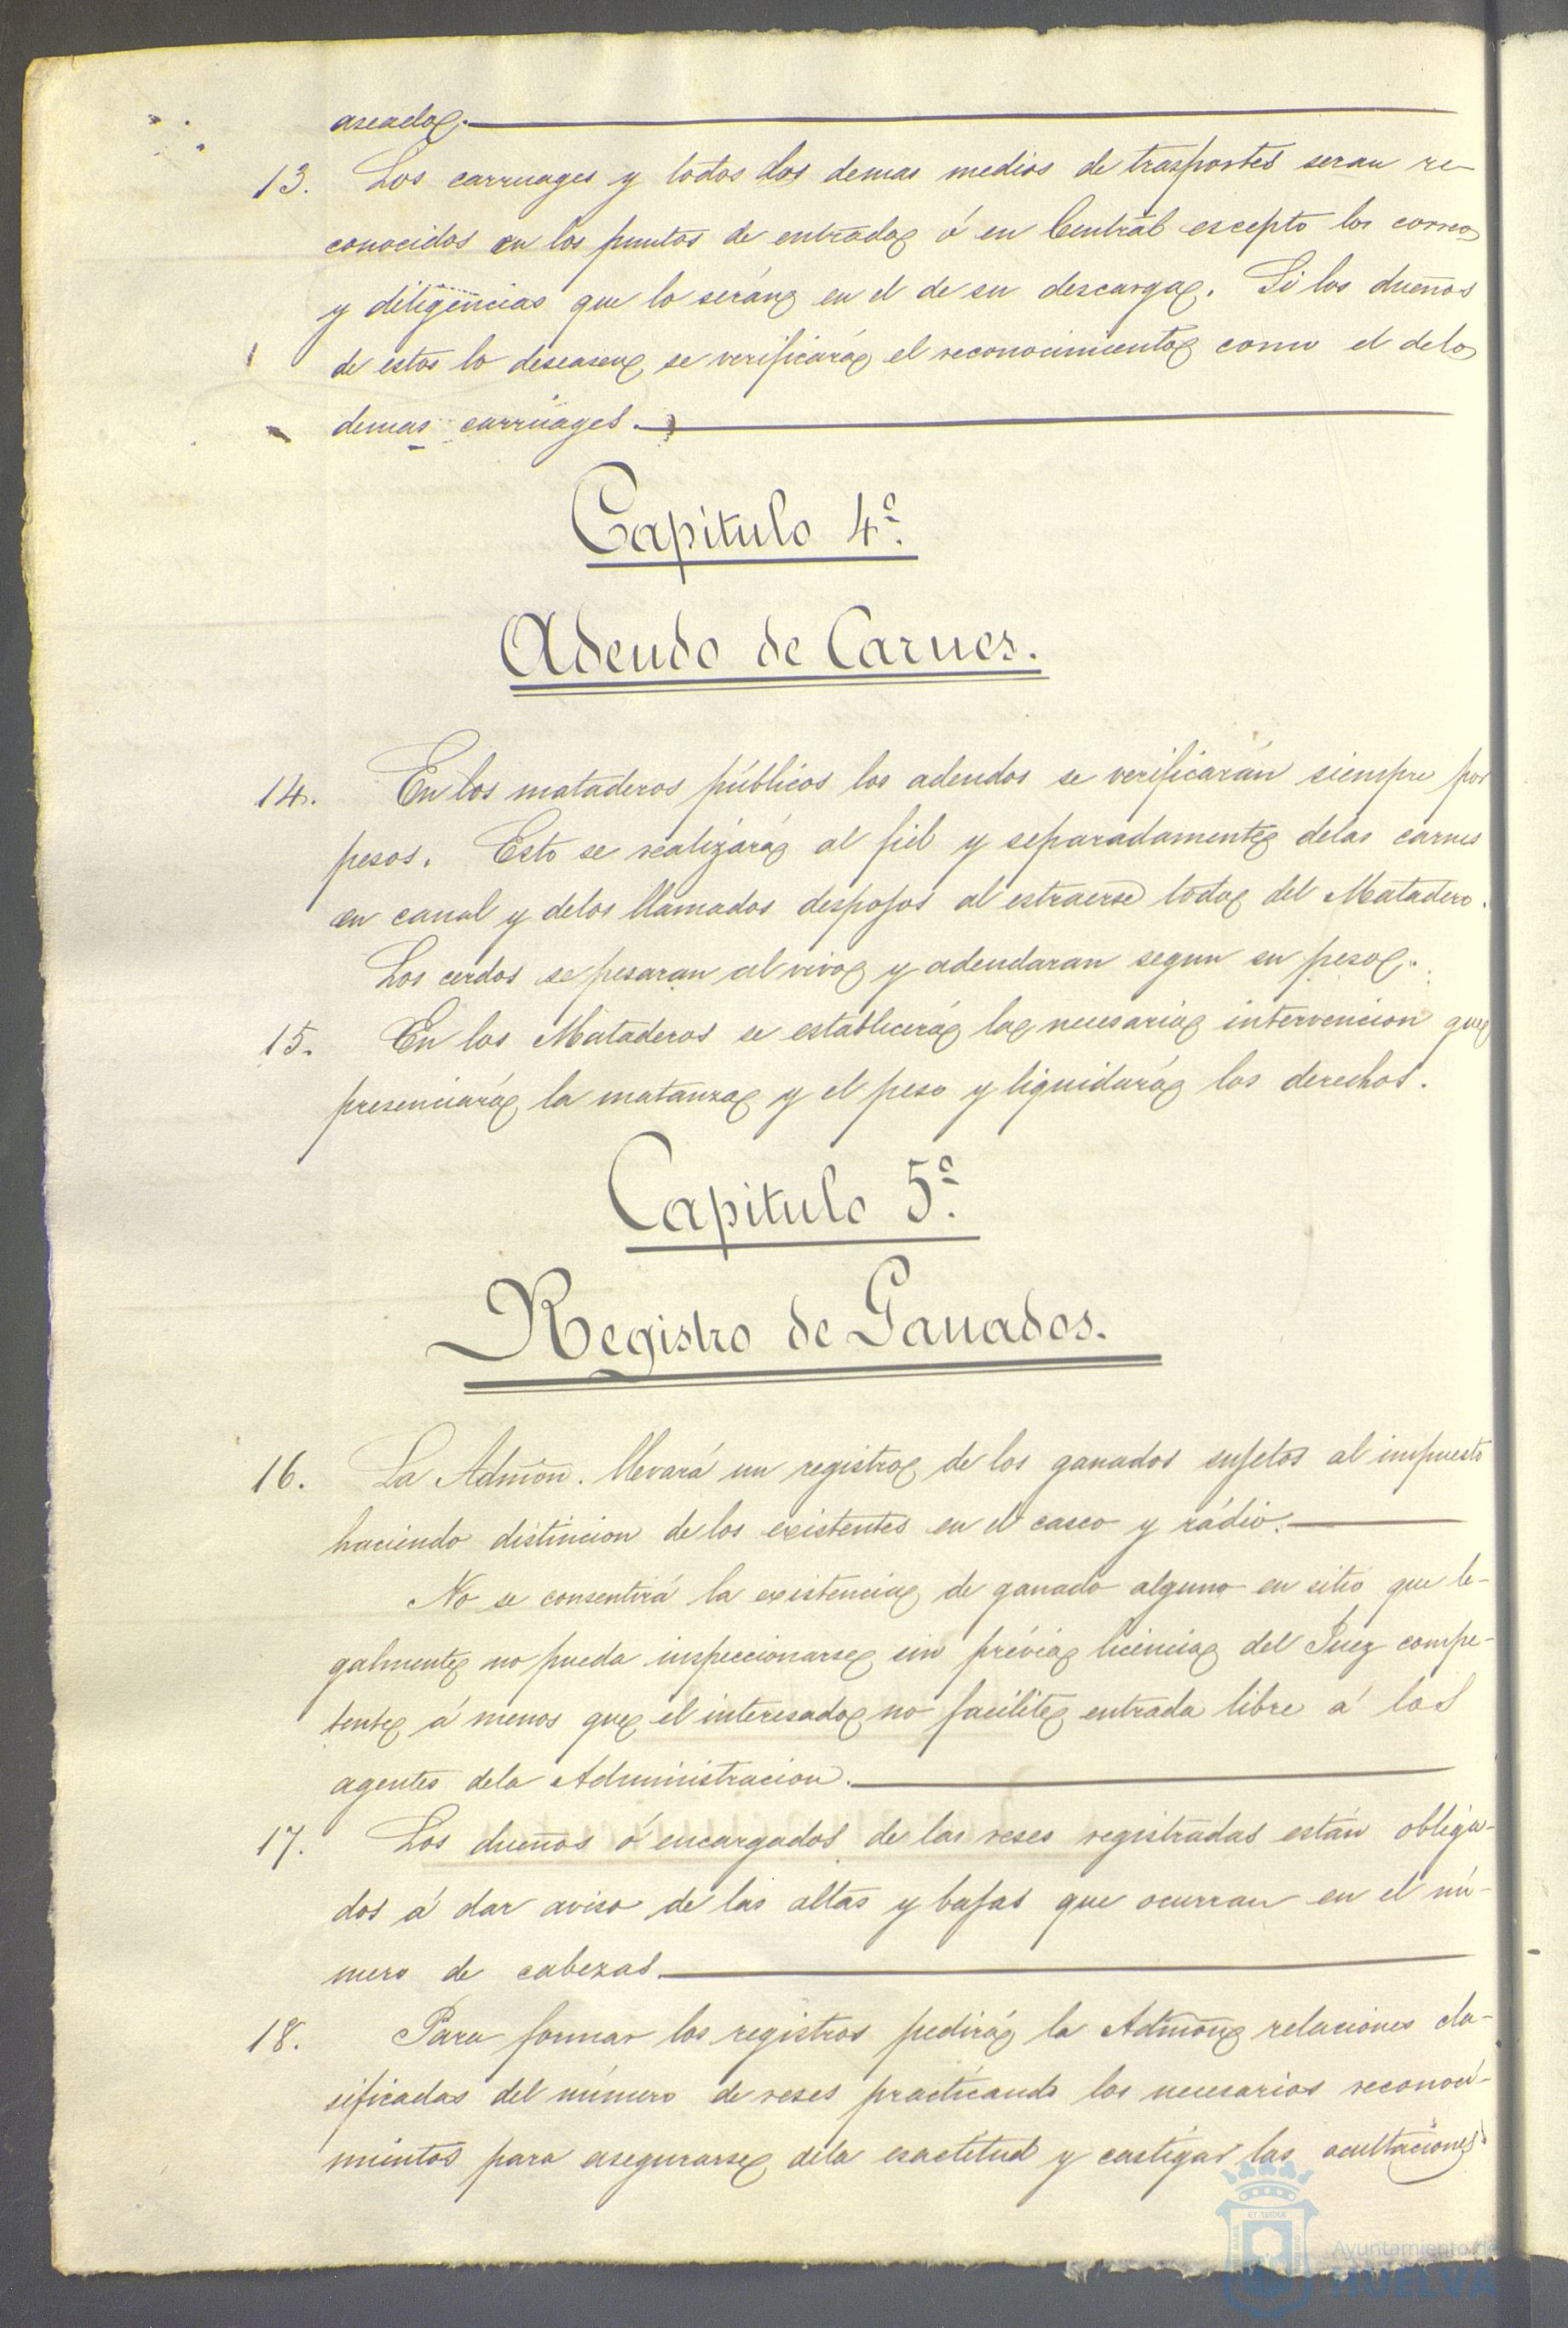 aseado.
13. Los carruages y todos los demas medios de trasportes seran re-
conocidos en los puntos de entrada ó en Central escepto los correos
y diligencias que lo serán en el de su descarga. Si los dueños
de estos lo deseasen se verificará el reconocimiento como el de los
demas carruages.
Capitulo 4º.
Adeudo de Carnes.
14. En los mataderos públicos los adeudos se verificarán siempre por
pesos. Esto se realizará al fiel y separadamente delas carnes
en canal y delos llamados despojos al estraerse todo del Matadero.
Los cerdos se pesaran al vivo y adeudaran segun su peso.
15. En los Mataderos se establecerá la necesaria intervencion que
presenciará la matanza y el peso y liquidará los derechos.
Capitulo 5º.
Registro de Ganados.
16. La Admon. llevará un registro de los ganados sujetos al impuesto
haciendo distincion de los existentes en el casco y rádio.
No se consentirá la existencia de ganado alguno en sitio que le-
galmente no pueda inspeccionarse sin prévia licencia del Juez compe-
tente á menos que el interesado no facilite entrada libre á los
agentes dela Administracion.
17. Los dueños ó encargados de las reses registradas están obliga-
dos á dar aviso de las altas y bajas que ocurran en el nú-
mero de cabezas.
18. Para formar los registros pedirá la Admon relaciones cla-
sificadas del número de reses practicando los necesarios reconoci-
mientos para asegurarse dela esactitud y castigar las ocultaciones.
Ayuntamiento de
HUELVA